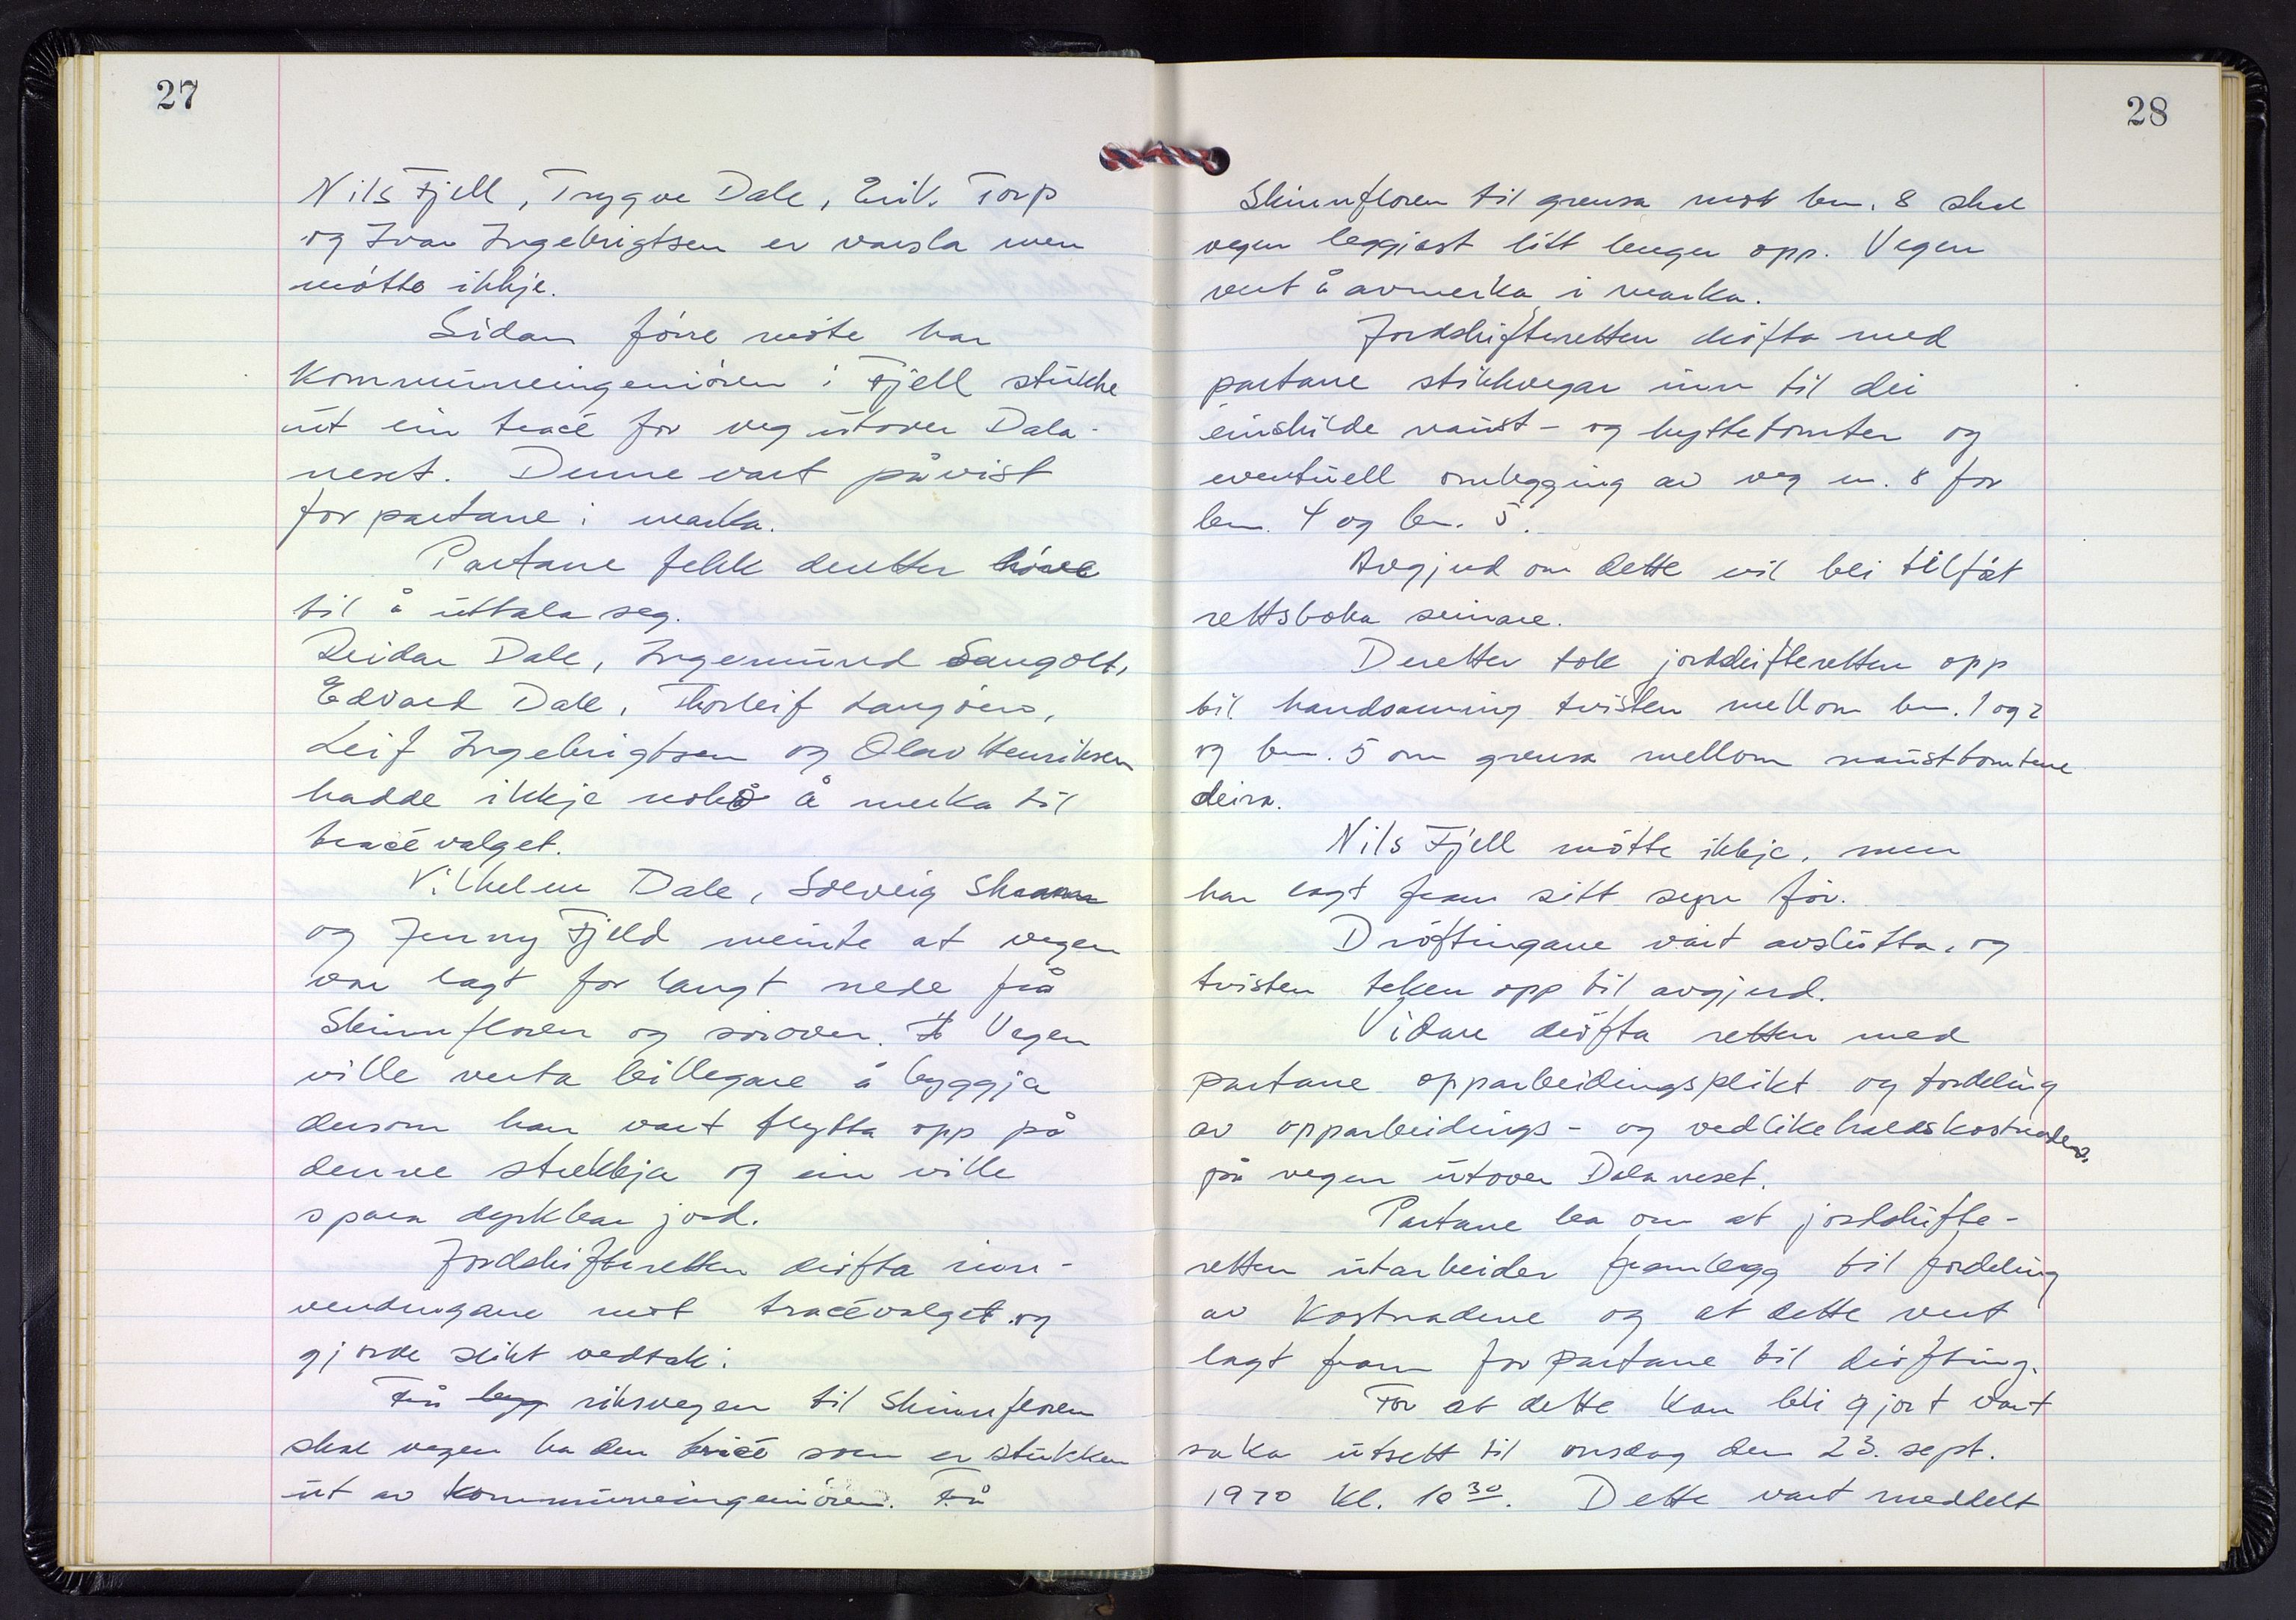 27
Nils Fjell, Trygve Dale, Erik Torp
og Ivar Ingebrigtsen er varsla men
møtte ikkje.
Sidan førre møte har
kommuneingeniøren i Fjell stukke
ut ein tracé for veg utover Dala-
neset. Denne vart påvist
for partane i marka.
Partane fekk deretter høve
til å uttala seg.
Reidar Dale, Ingemund Sangolt,
Edvard Dale, Thorleif Langøen,
Leif Ingebrigtsen og Olav Henriksen
hadde ikkje noko å merka til
tracévalget.
Vilhelm Dale, Solveig
og Jenny Fjeld meinte at vegen
var lagt for langt nede frå
Skinnfloren og sørover. Vegen
ville verta billegare å byggja
dersom han vart flytta opp på
denne strekkja og ein ville
spara dyrkbar jord.
Jordskifteretten drøfta inn-
vendingane mot tracévalget og
gjorde slikt vedtak:
Frå bygg riksvegen til Skinnfloren
skal vegen ha den tracé som er stukken
ut av kommuneingeniøren. Frå
28
Skinnfloren til grensa mot bn. 8 skal
vegen leggjast litt lenger opp. Vegen
vert å avmerka i marka.
Jordskifteretten drøfta med
partane stikkvegar inn til dei
einskilde naust- og hyttetomter og
eventuell omlegging av veg n. 8 for
bn. 4 og bn. 5.
Avgjerd om dette vil bli tilført
rettsboka seinare.
Deretter tok jordskifteretten opp
til handsaming tvisten mellom bn. 1 og 2
og bn. 5 om grensa mellom nausttomtene
deira.
Nils Fjell møtte ikkje, men
har lagt fram sitt syn før.
Drøftingane vart avslutta, og
tvisten teken opp til avgjerd.
Vidare drøfta retten med
partane opparbeidingsplikt og fordeling
av opparbeidings- og vedlikehaldskostnadene
på vegen utover Dalaneset.
Partane ba om at jordskifte-
retten utarbeider framlegg til fordeling
av kostnadene og at dette vert
lagt fram for partane til drøfting.
For at dette kan bli gjort vart
saka utsett til onsdag den 23. sept.
1970 kl. 10 30. Dette vart meddelt